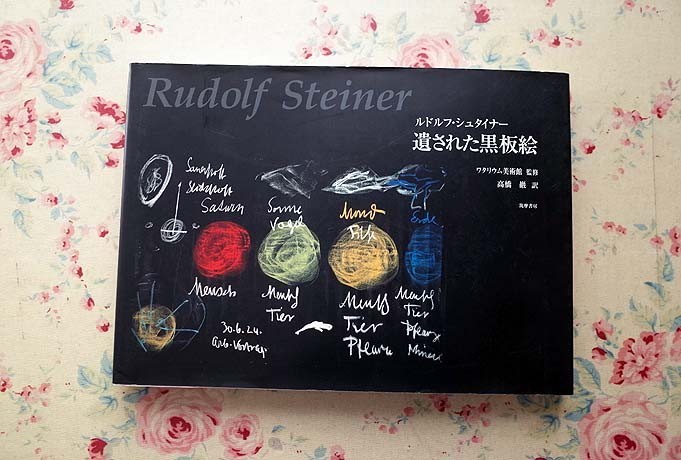 Rudolf Steiner
ルドルフ・シュタイナー
遺された黒板絵
ワタリウム美術館 監修
高橋 巖 訳
筑摩書房
Sauerstoff
Stickstoff
Saturn
Sonne
Vogel
Mond
Erde
Mensch
Mensch
Tier
Mensch
Tier
Pflanz
Mensch
Tier
Pflanz
Miner
30.6.24.
Arb. Vortrag